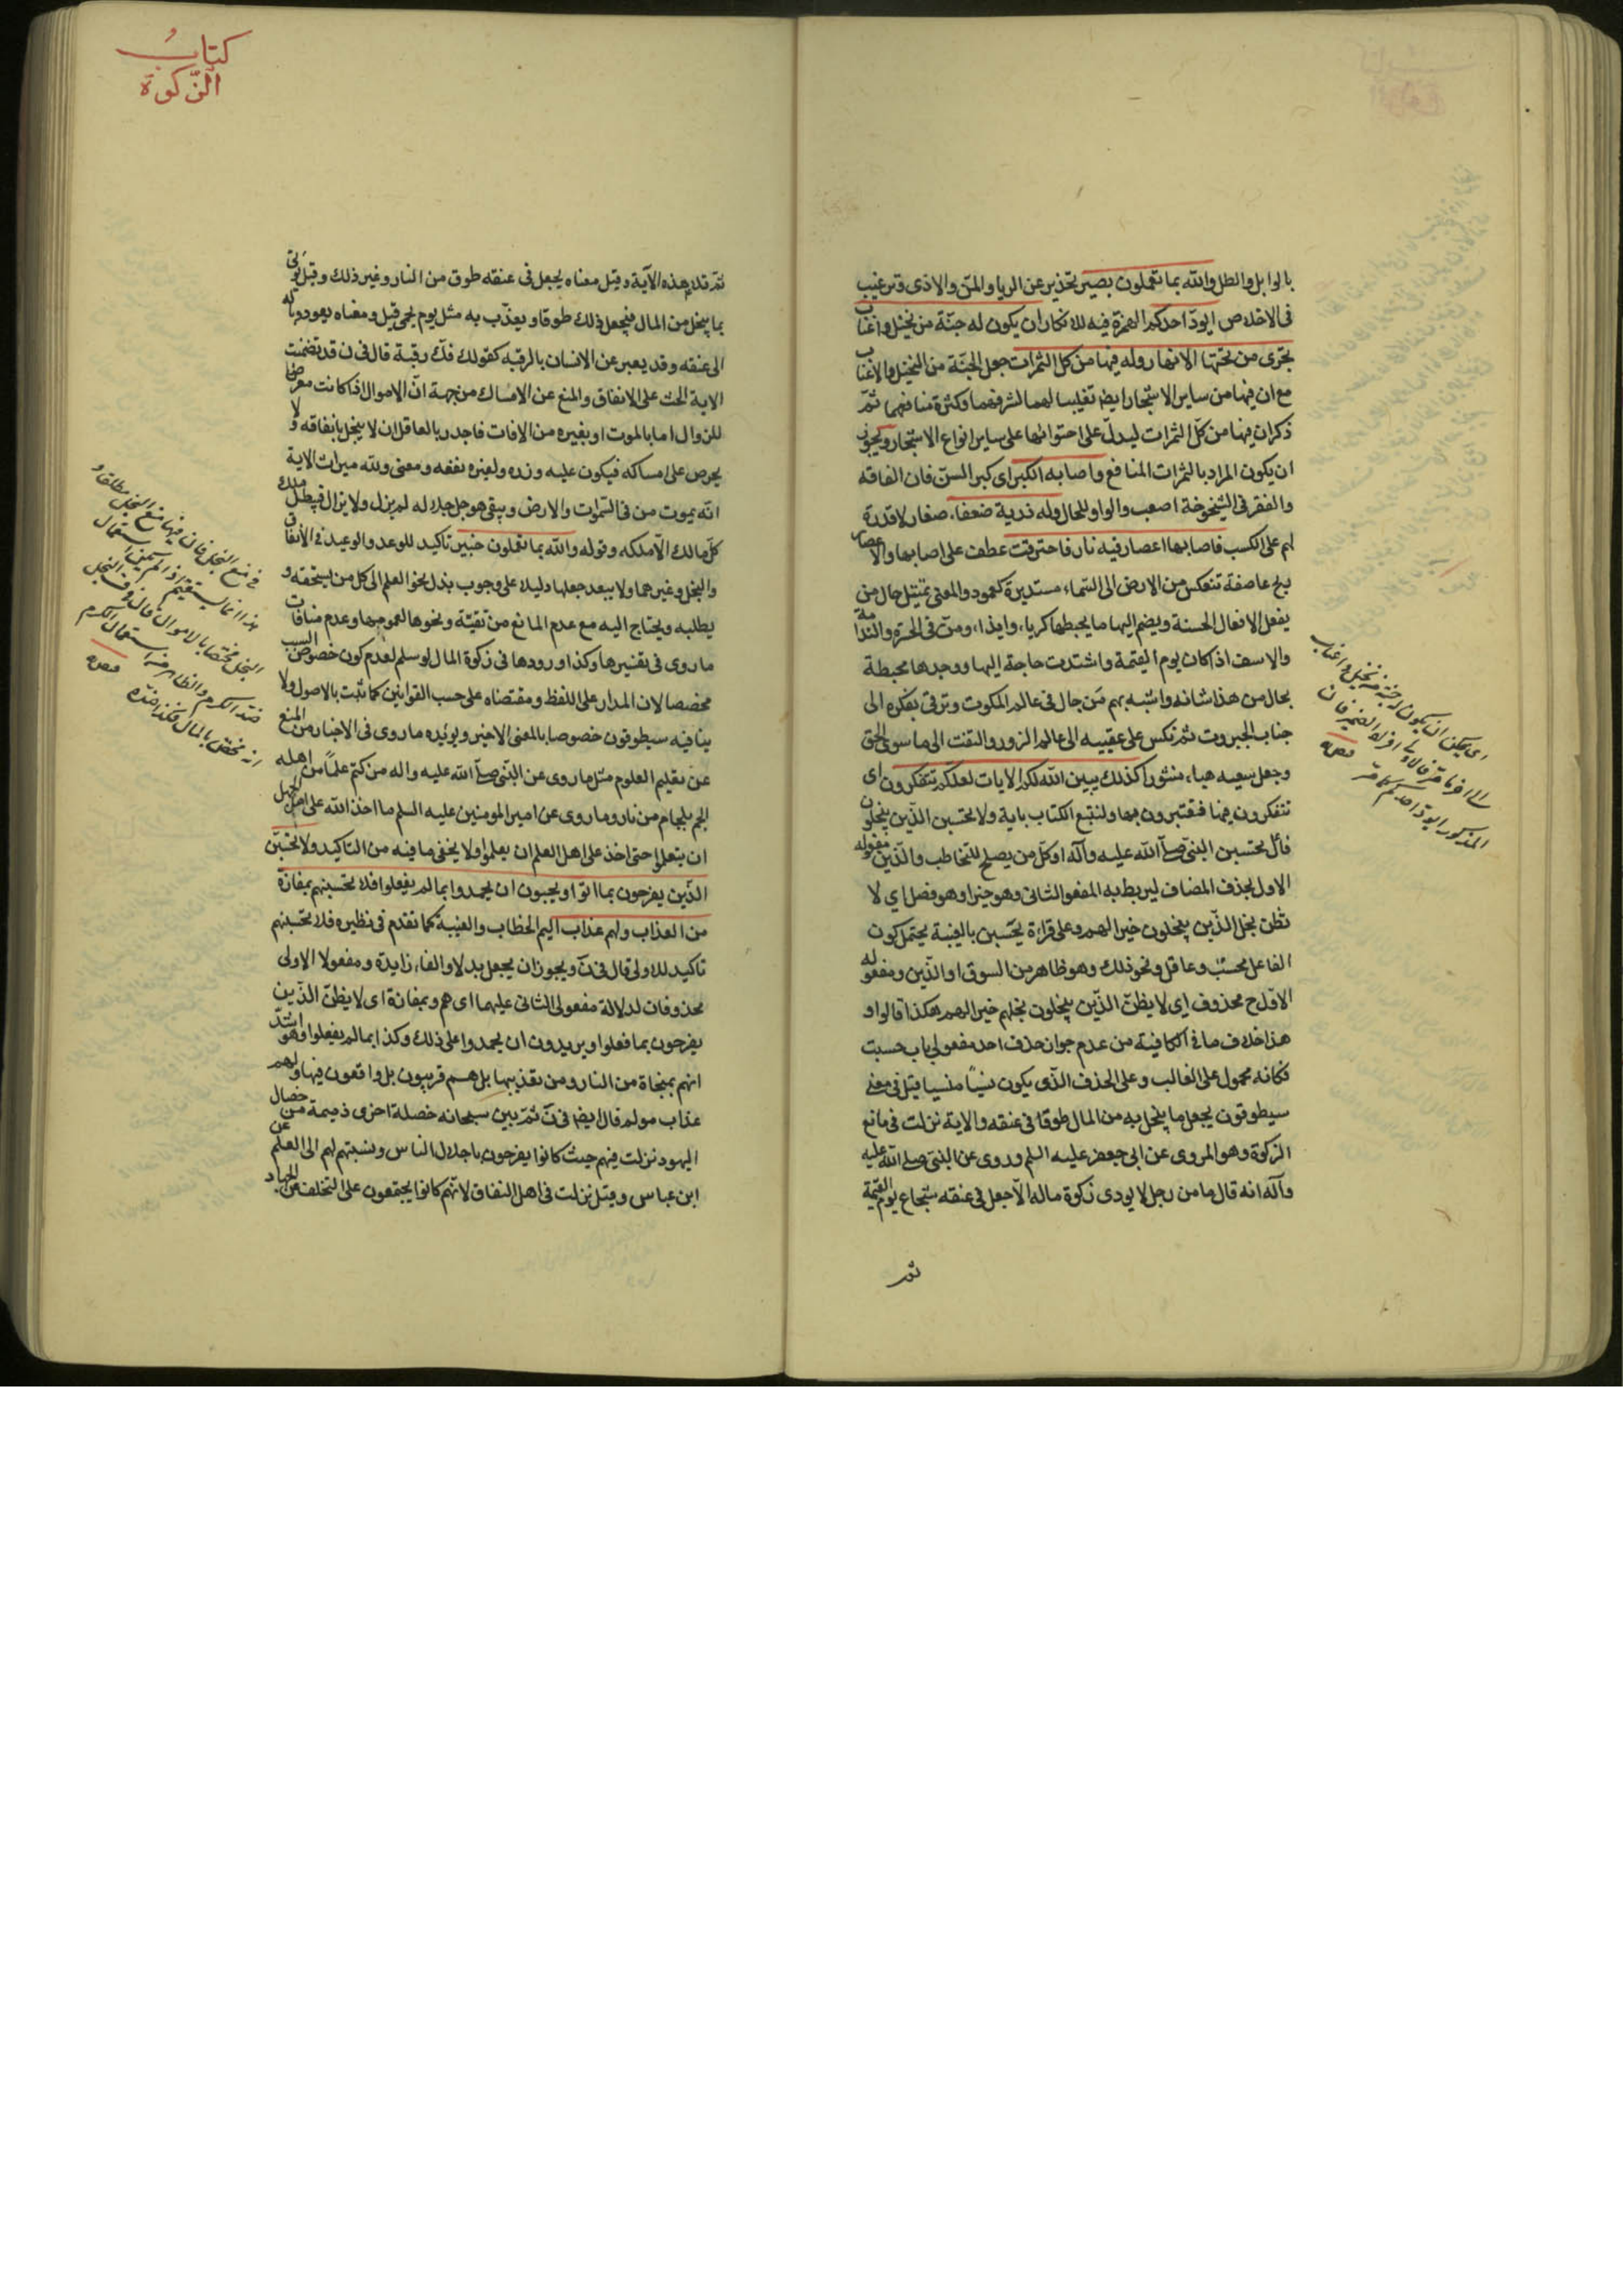 بالوابل والطل والله بما تعملون بصير تحذير عن الريا والمن والاذى وترغيب
فى الاخلاص ايود احدكم الهمزة فيه للانكار ان يكون له جنة من نخيل واعناب
تجرى من تحتها الانهار وله فيها من كل الثمرات جعل الجنة من النخيل والاعناب
مع ان فيها من ساير الاشجار ايضا تغليبا لهما لشرفهما وكثرة منافعهما ثم
ذكر ان فيها من كل الثمرات ليدل على احتوائها على ساير انواع الاشجار ويجوز
ان يكون المراد بالثمرات المنافع واصابه الكبر اى كبر السن فان الفاقه
والفقر فى الشيخوخة اصعب والواو للحال وله ذرية ضعفاء صغار لا قدرة
لهم على الكسب فاصابها اعصار فيه نار فاحترقت عطف على اصابها والاعصار
ريح عاصفة تنعكس من الارض الى السماء مستديرة كعمود والمعنى تمثيل حال من
يفعل الافعال الحسنة ويضم اليها ما يحبطها كرياء وايذاء ومن فى الحسرة والندامة
والاسف اذا كان يوم القيمة واشتدت حاجة اليها ووجدها محبطة
بحال من هذا شانه واشبه بهم من جال فى عالم الملكوت وترقى بفكره الى
جناب الجبروت ثم نكس على عقبيه الى عالم الزور والتفت الى ما سوى الحق
وجعل سعيه هباء منثورا كذلك يبين الله لكم الايات لعلكم تتفكرون اى
تتفكرون فيها فتعتبرون بها ولنتبع الكتاب باية ولا تحسبن الذين يبخلون
فاعل تحسبن النبى صلى الله عليه وآله او كل من يصلح للتخاطب والذين مفعوله
الاول بحذف المضاف ليربط به المفعول الثانى وهو خيرا وهو فصل اي لا
تظن بخل الذين يبخلون خيرا لهم وعلى قراءة يحسبن بالغيبة يحتمل كون
الفاعل محسب وعاقل ونحو ذلك وهو ظاهر من السوق او الذين ومفعوله
الاول ح محذوف اي لا يظن الذين يبخلون بخلهم خيرا لهم هكذا قالوا و
هذا خلاف ما فى الكافية من عدم جواز حذف احد مفعولي باب حسبت
فكانه محمول على الغالب وعلى الحذف الذى يكون نسيا منسيا قيل فى معنى
سيطوقون يجعل ما يبخل به من المال طوقا فى عنقه والاية نزلت فى مانع
الزكوة وهو المروى عن ابى جعفر عليه السلم وروى عن النبى صلى الله عليه
وآله انه قال ما من رجل لا يودى زكوة ماله الا جعل فى عنقه شجاع يوم القيمة
ثم
اى يمكن ان يكون له جنة من نخيل واعناب
المذكور ايود احدكم كما مر
منه
كتاب
الزكوة
ثم تلا هذه الآية وقيل معناه يجعل فى عنقه طوق من النار وغير ذلك وقيل يؤتى
بما يبخل من المال فيجعل ذلك طوقا ويعذب به مثل يوم يحمى وقيل ومعناه يعود وباله
الى عنقه وقد يعبر عن الانسان بالرقبه كقولك فك رقبة قال فى ن قد تضمنت
الاية الحث على الانفاق والمنع عن الامساك من جهة ان الاموال اذا كانت معرضا
للزوال اما بالموت او بغيره من الافات فاجدر بالعاقل ان لا يبخل بانفاقه ولا
يحرص على امساكه فيكون عليه وزره ولغيره نفعه ومعنى ولله ميراث الاية
انه يموت من فى السموات والارض ويبقى هو جل جلاله لم يزل ولا يزال فيبطل ملك
كل مالك الا ملكه وقوله والله بما تعملون خبير تاكيد للوعد والوعيد فى الانفاق
والبخل وغيرهما ولا يبعد جعلها دليلا على وجوب بذل نحو العلم الى كل من يستحقه و
يطلبه ويحتاج اليه مع عدم المانع من تقية ونحوها لعمومها وعدم منافات
ما روى فى تفسيرها وكذا ورودها فى زكوة المال لو سلم لعدم كون خصوص السبب
مخصصا لان المدار على اللفظ ومقتضاه على حسب القوانين كما ثبت بالاصول ولا
ينافيه سيطوقون خصوصا بالمعنى الاخير ويؤيده ما روى فى الاخبار من المنع
عن تعليم العلوم مثل ما روى عن النبى صلى الله عليه واله من كتم علما من اهله
الجم بلجام من نار وما روى عن امير المومنين عليه السلم ما اخذ الله على اهل الجهل
ان يتعلموا حتى اخذ على اهل العلم ان يعلموا ولا يخفى ما فيه من التاكيد ولا تحسبن
الذين يفرحون بما اتوا ويحبون ان يحمدوا بما لم يفعلوا فلا تحسبنهم بمفازة
من العذاب ولهم عذاب اليم الخطاب والغيبة كما تقدم فى نظيره فلا تحسبنهم
تاكيد للاولى قال فى ن ويجوز ان يجعل بدلا والفاء زايدة ومفعولا الاولى
محذوفان لدلالة مفعولى الثانى عليهما اى هم وبمفازة اى لا يظن الذين
يفرحون بما فعلوا ويريدون ان يحمدوا على ذلك وكذا بما لم يفعلوا وهو اشد
انهم بمنجاة من النار ومن تعذيبها بل هم قريبون بل واقعون فيها ولهم
عذاب مولم قال ايضا فى ن ثم بين سبحانه خصلة اخرى ذميمة من خصال
اليهود نزلت فيهم حيث كانوا يفرحون باجلال الناس ونسبتهم لهم الى العلم عن
ابن عباس وقيل نزلت فى اهل النفاق لانهم كانوا يجتمعون على التخلف عن الجهاد
منه